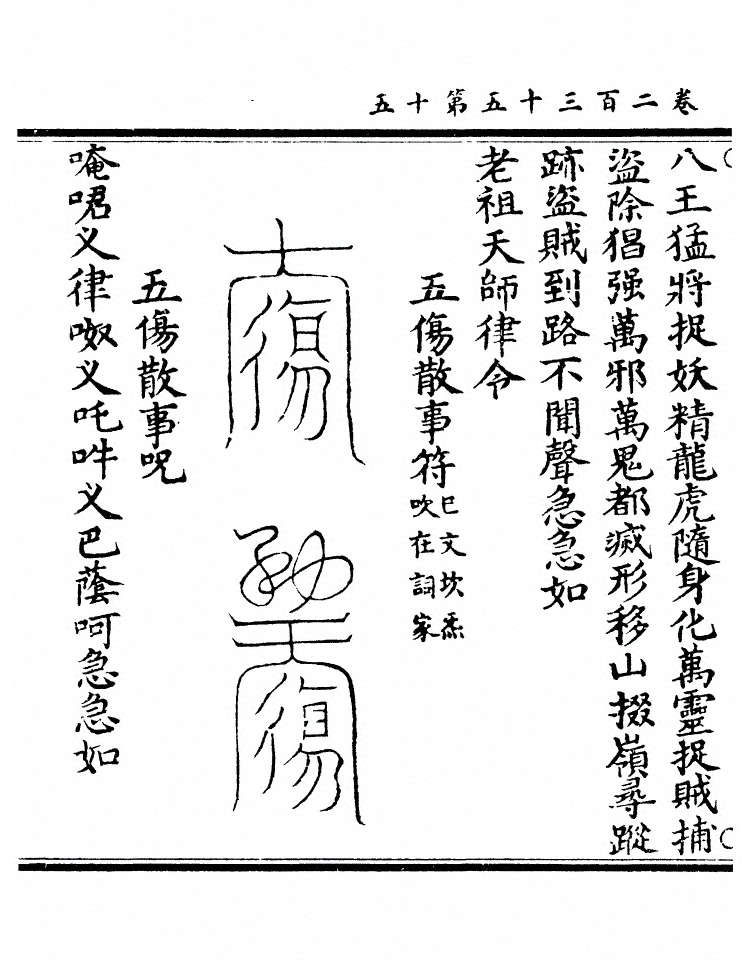 卷二百三十五第十五
八王猛將捉妖精龍虎隨身化萬靈捉賊捕
盜除猖强萬邪萬鬼都滅形移山掇嶺尋蹤
跡盜賊到路不聞聲急急如
老祖天師律令
五傷散事符
巳文坎炁
吹在詞家
五傷散事呪
唵㖥义律呶义吒吽义巴蔭呵急急如